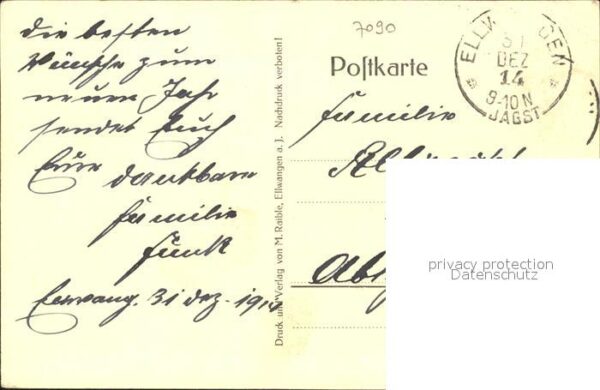 die besten
Wünsche zum
neuen Jahr
sendet Euch
Eure dankbare
Familie
Funk
Ellwang. 31 Dez. 1914
Druck und Verlag von M. Raible, Ellwangen a. J. Nachdruck verboten!
7090
Postkarte
ELLWANGEN
31
DEZ
14
9-10 N
JAGST
Familie
privacy protection
Datenschutz